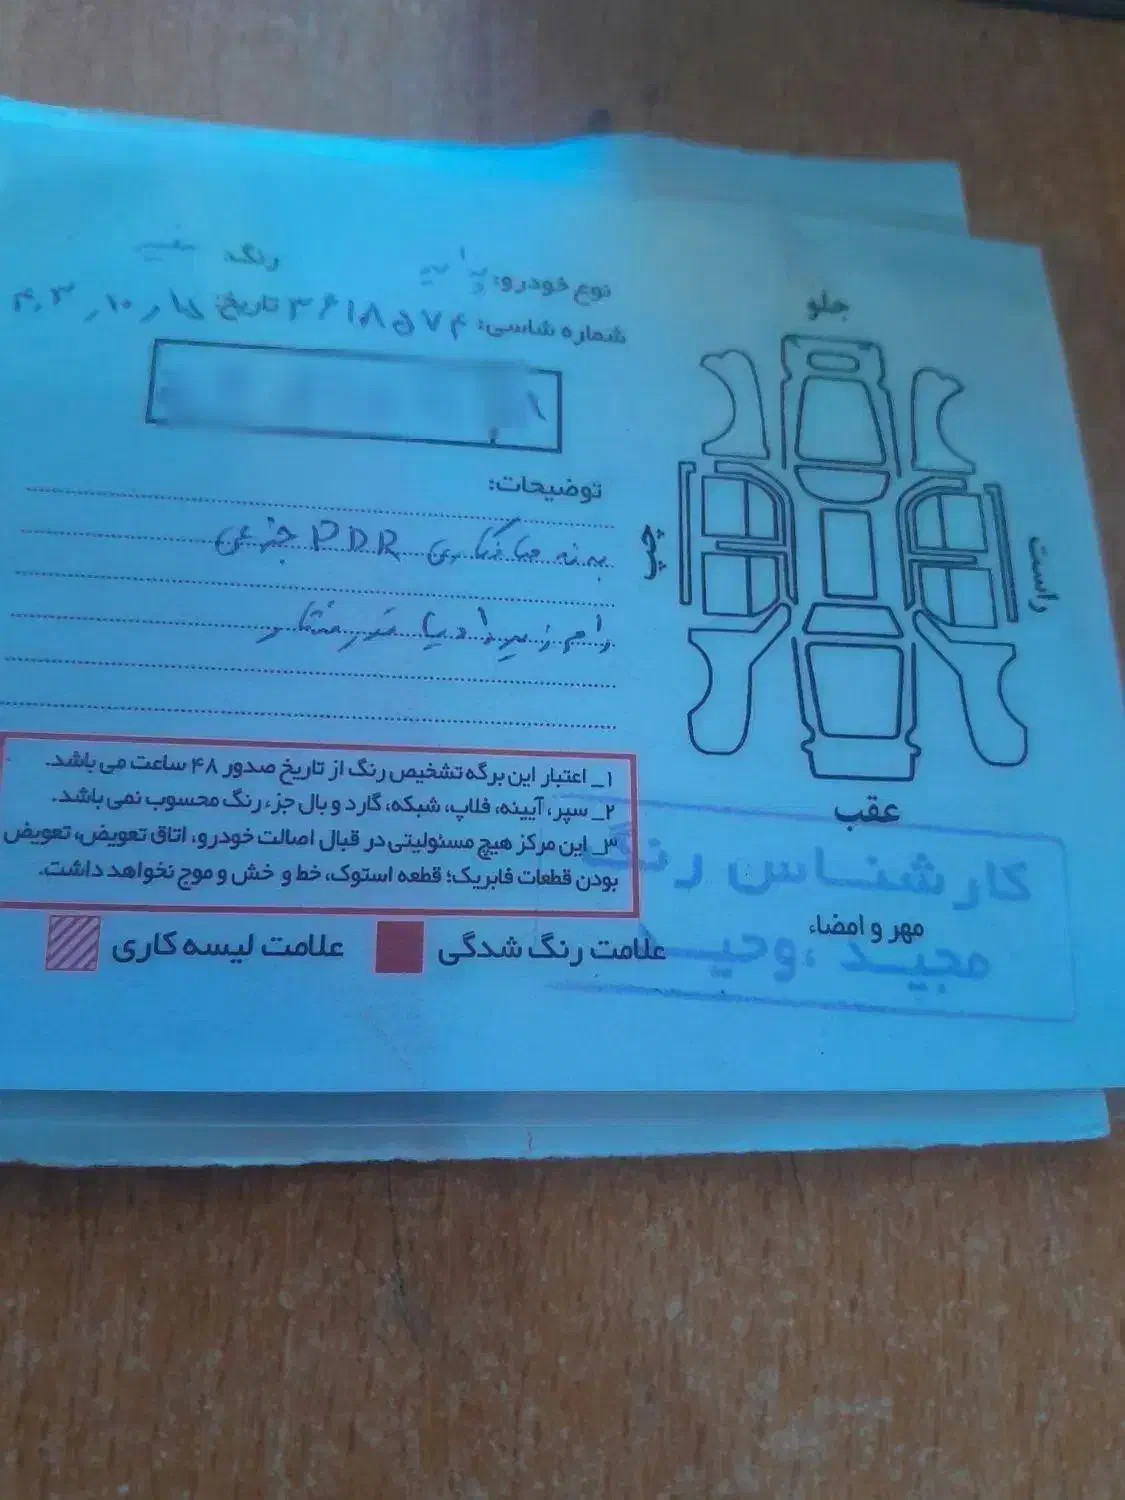 نوع خودرو: رنگ سفید
شماره شاسی: ۳۶۱۸۵۷۴ تاریخ:
توضیحات:
بدنه صافکاری PDR جزعی
رام زیر رادیاتور
۱_ اعتبار این برگه تشخیص رنگ از تاریخ صدور ۴۸ ساعت می باشد.
۲_ سپر، آیینه، فلاپ، شبکه، گارد و بال جزء رنگ محسوب نمی باشد.
۳_ این مرکز هیچ مسئولیتی در قبال اصالت خودرو، اتاق تعویض، تعویض
بودن قطعات فابریک؛ قطعه استوک، خط و خش و موج نخواهد داشت.
علامت رنگ شدگی
علامت لیسه کاری
جلو
چپ
راست
عقب
مهر و امضاء
کارشناس رنگ
مجید وحید